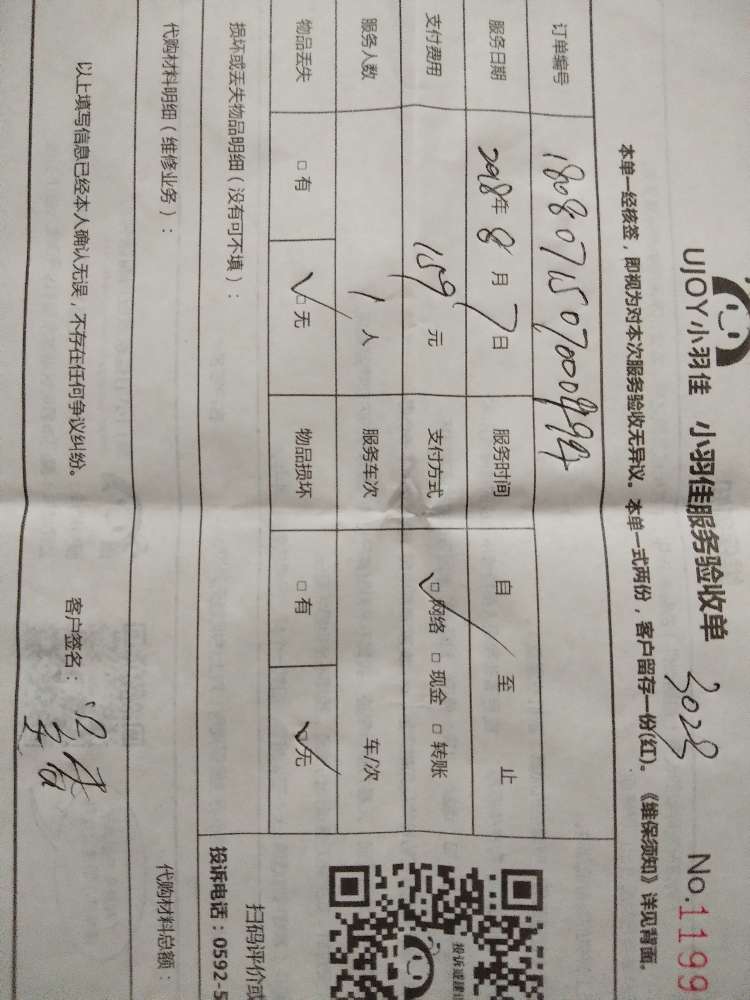 UJOY小羽佳 小羽佳服务验收单 3028 No.1199
本单一经核签，即视为对本次服务验收无异议。本单一式两份，客户留存一份(红)。《维保须知》详见背面。
订单编号
服务日期 2018年 8 月 7 日 服务时间 自 至 止
支付费用 159 元 支付方式 □网络 □现金 □转账
服务人数 1 人 服务车次 车/次
物品丢失 □有 □无 物品损坏 □有 □无
损坏或丢失物品明细（没有可不填）：
代购材料明细（维修业务）： 代购材料总额：
以上填写信息已经本人确认无误，不存在任何争议纠纷。 客户签名：
投诉或建
扫码评价或
投诉电话：0592-5